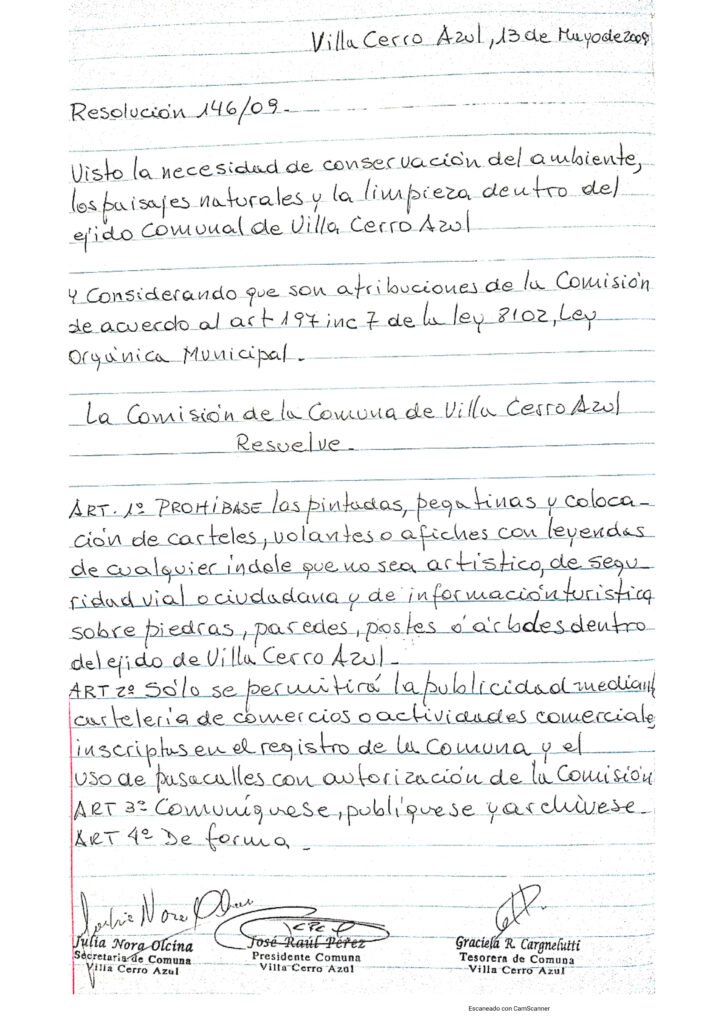 Villa Cerro Azul, 13 de Mayo de 2009
Resolución 146/09.-
Visto la necesidad de conservación del ambiente,
los paisajes naturales y la limpieza dentro del
ejido Comunal de Villa Cerro Azul
Y Considerando que son atribuciones de la Comisión
de acuerdo al art 197 inc 7 de la ley 8102, Ley
Orgánica Municipal.-
La Comisión de la Comuna de Villa Cerro Azul
Resuelve.-
ART. 1º PROHÍBASE las pintadas, pegatinas y coloca-
ción de carteles, volantes o afiches con leyendas
de cualquier índole que no sea artístico, de segu-
ridad vial o ciudadana y de información turística
sobre piedras, paredes, postes ó árboles dentro
del ejido de Villa Cerro Azul.-
ART 2º Sólo se permitirá la publicidad mediant
cartelería de comercios o actividades comerciale
inscriptas en el registro de la Comuna y el
uso de pasacalles con autorización de la Comisión
ART 3º Comuníquese, publíquese y archívese.-
ART 4º De forma.-
Julia Nora Olcina
Secretaria de Comuna
Villa Cerro Azul
José Raúl Pérez
Presidente Comuna
Villa Cerro Azul
Graciela R. Cargnelutti
Tesorera de Comuna
Villa Cerro Azul
Escaneado con CamScanner